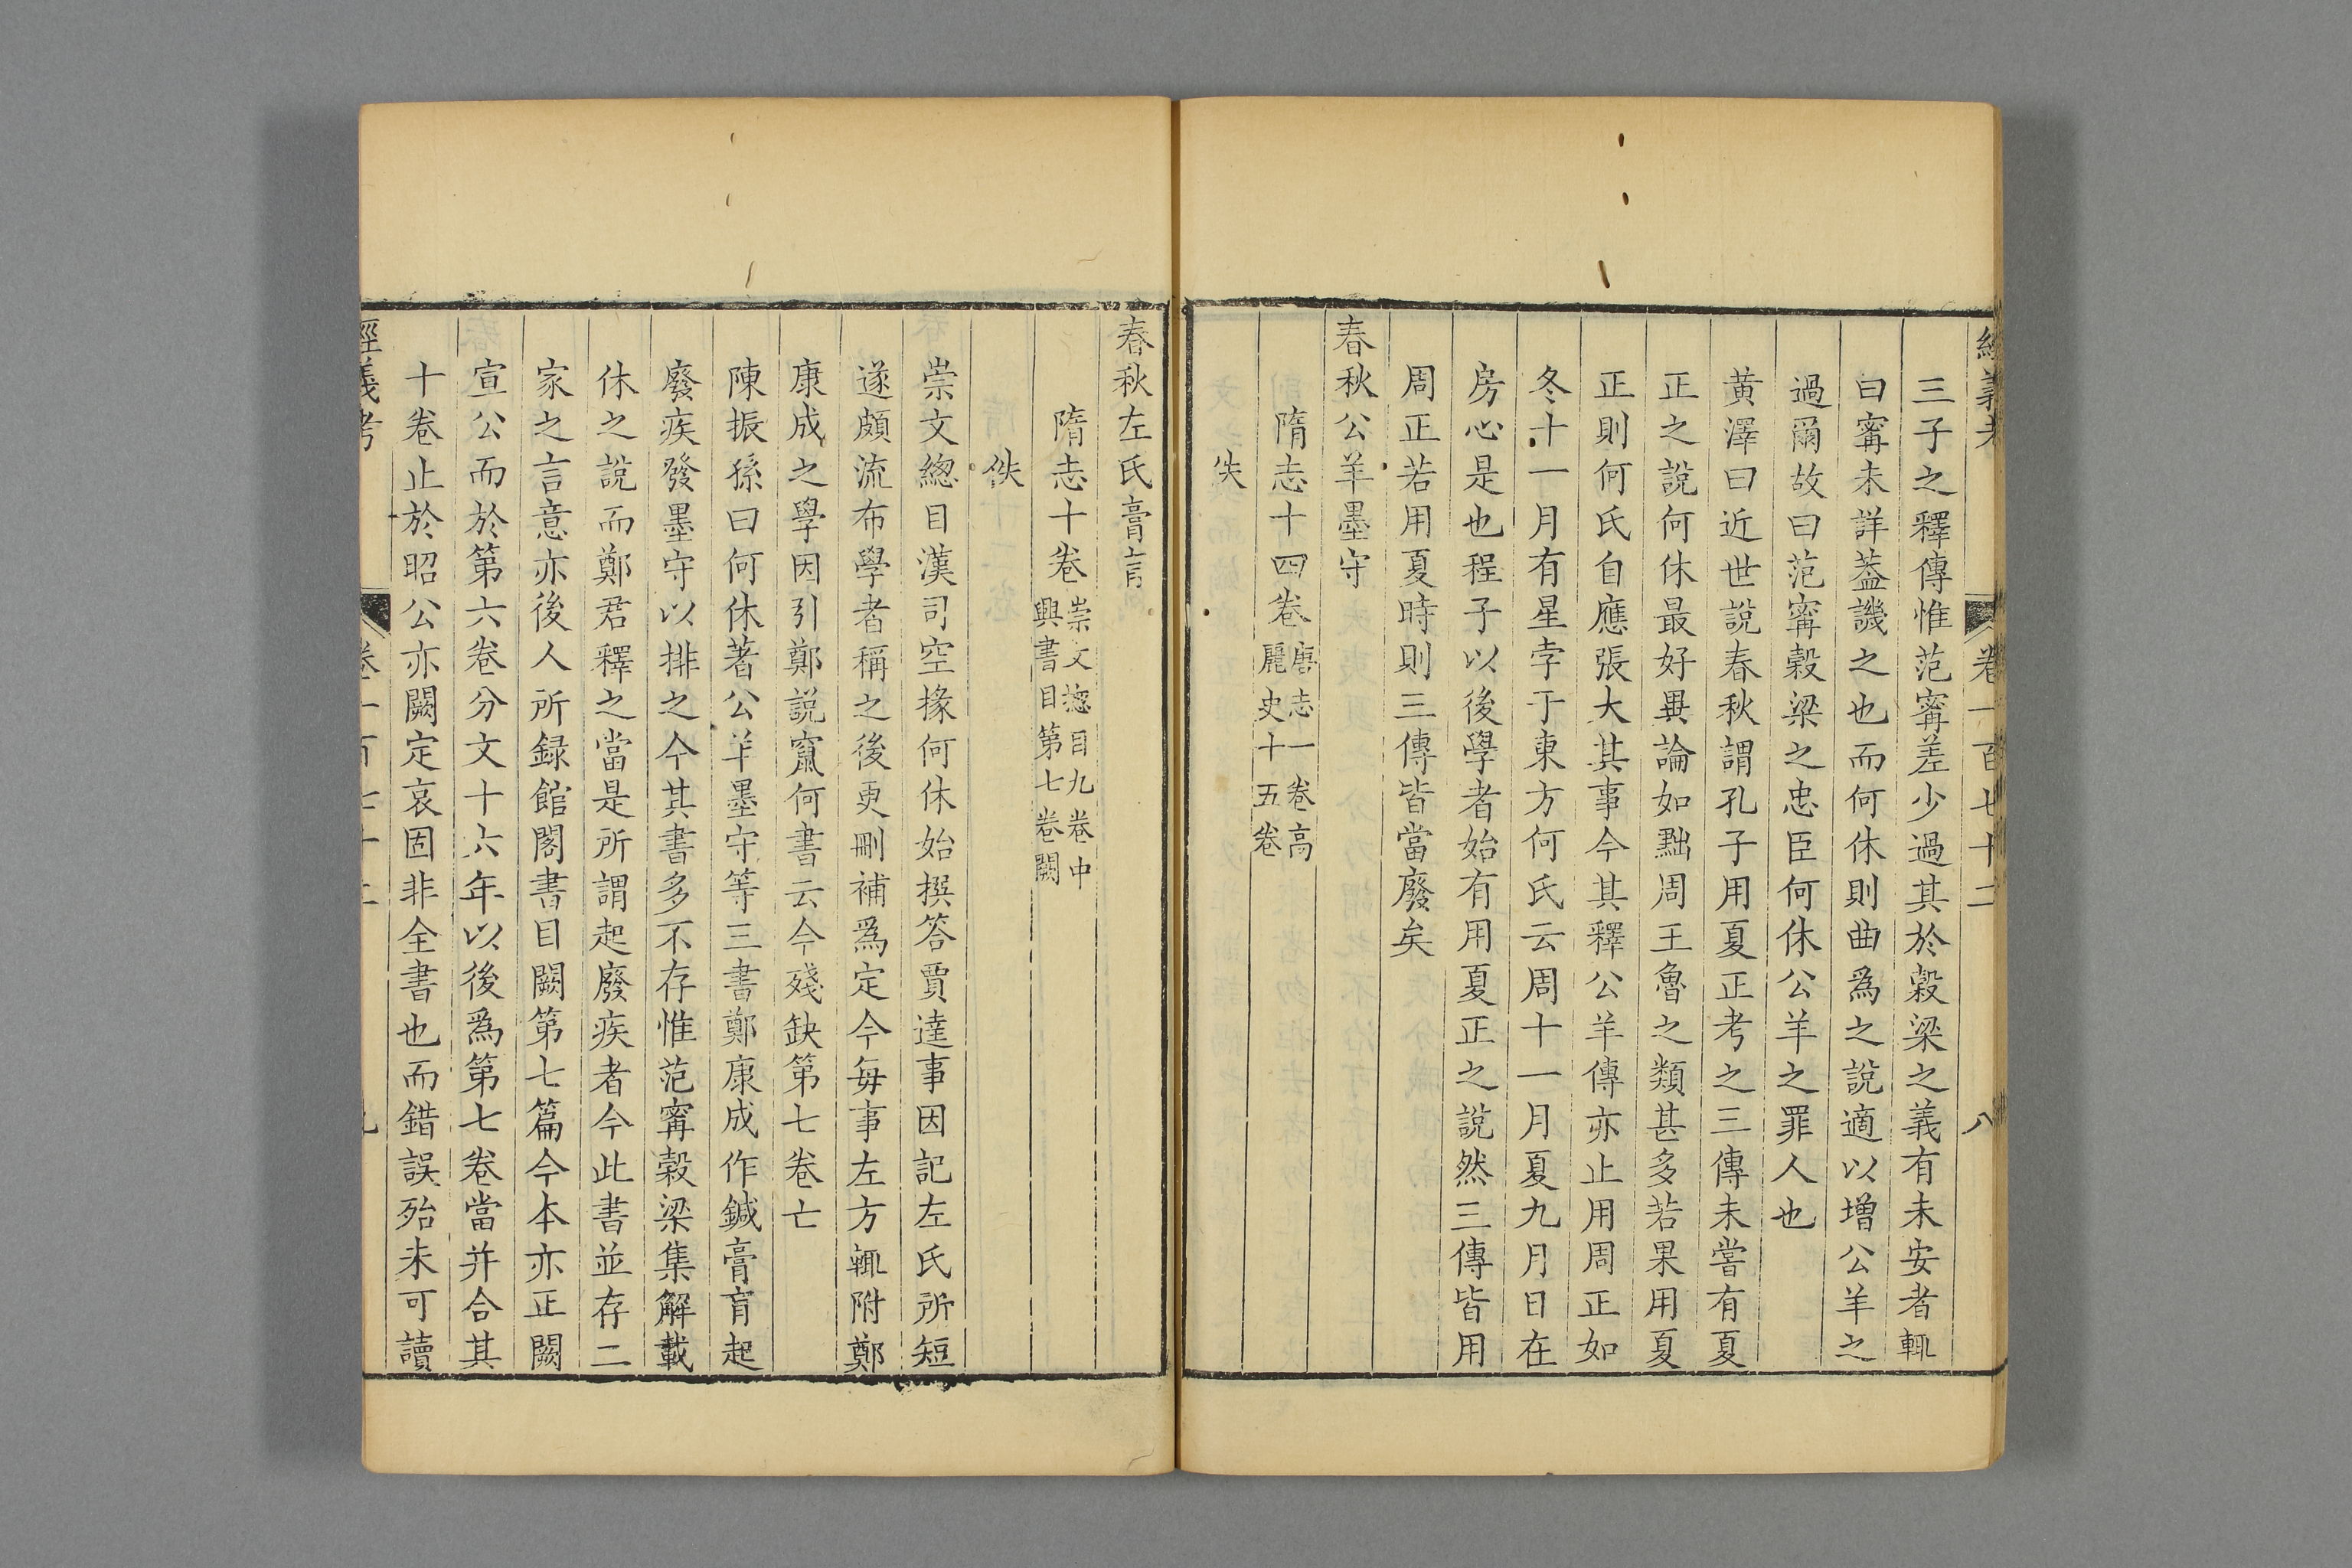 經義考
卷一百七十二
八
三子之釋傳惟范寗差少過其於穀梁之義有未安者輒
曰寗未詳葢譏之也而何休則曲爲之說適以增公羊之
過爾故曰范寗穀梁之忠臣何休公羊之罪人也
黃澤曰近世說春秋謂孔子用夏正考之三傳未嘗有夏
正之說何休最好異論如黜周王魯之類甚多若果用夏
正則何氏自應張大其事今其釋公羊傳亦止用周正如
冬十一月有星孛于東方何氏云周十一月夏九月日在
房心是也程子以後學者始有用夏正之說然三傳皆用
周正若用夏時則三傳皆當廢矣
春秋公羊墨守
隋志十四卷唐志一卷高
麗史十五卷
佚
春秋左氏膏肓
隋志十卷崇文總目九卷中
興書目第七卷闕
佚
崇文總目漢司空掾何休始撰答賈逵事因記左氏所短
遂頗流布學者稱之後更刪補爲定今每事左方輒附鄭
康成之學因引鄭說竄何書云今殘缺第七卷亡
陳振孫曰何休著公羊墨守等三書鄭康成作鍼膏肓起
廢疾發墨守以排之今其書多不存惟范寗穀梁集解載
休之說而鄭君釋之當是所謂起廢疾者今此書並存二
家之言意亦後人所録館閣書目闕第七篇今本亦正闕
宣公而於第六卷分文十六年以後爲第七卷當并合其
十卷止於昭公亦闕定哀固非全書也而錯誤殆未可讀
經義考